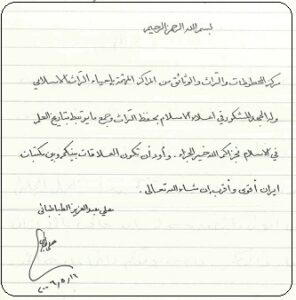 بسم الله الرحمن الرحيم
مركز المخطوطات والتراث والوثائق من المراكز المهتمة بإحياء التراث الاسلامي
وله المجد المشكور في اعلاء الاسلام بحفظ التراث وجمع ما يرتبط بتاريخ العلم
في الاسلام فجزاكم الله خير الجزاء. وأود أن تكون العلاقات بينكم وبين مكتبات
ايران أقوى وأقرب إن شاء الله تعالى.
علي عبد العزيز الطباطبائي
٢٠٠٦/٥/١٦